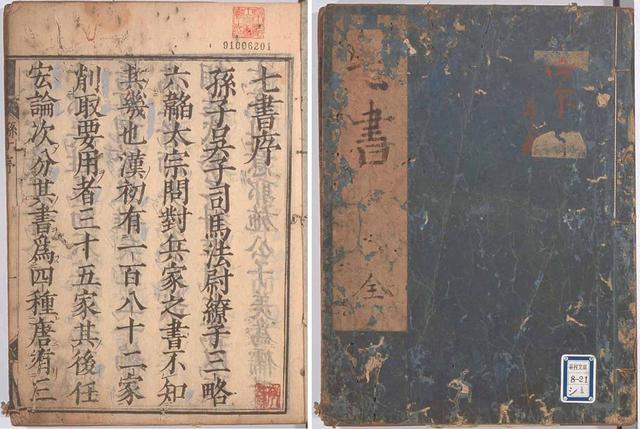 91006201
七書序
孫子吳子司馬法尉繚子三略
六韜太宗問對兵家之書不知
其幾也漢初有一百八十二家
削取要用者三十五家其後任
宏論次分其書爲四種唐有三
七書
全
8-21